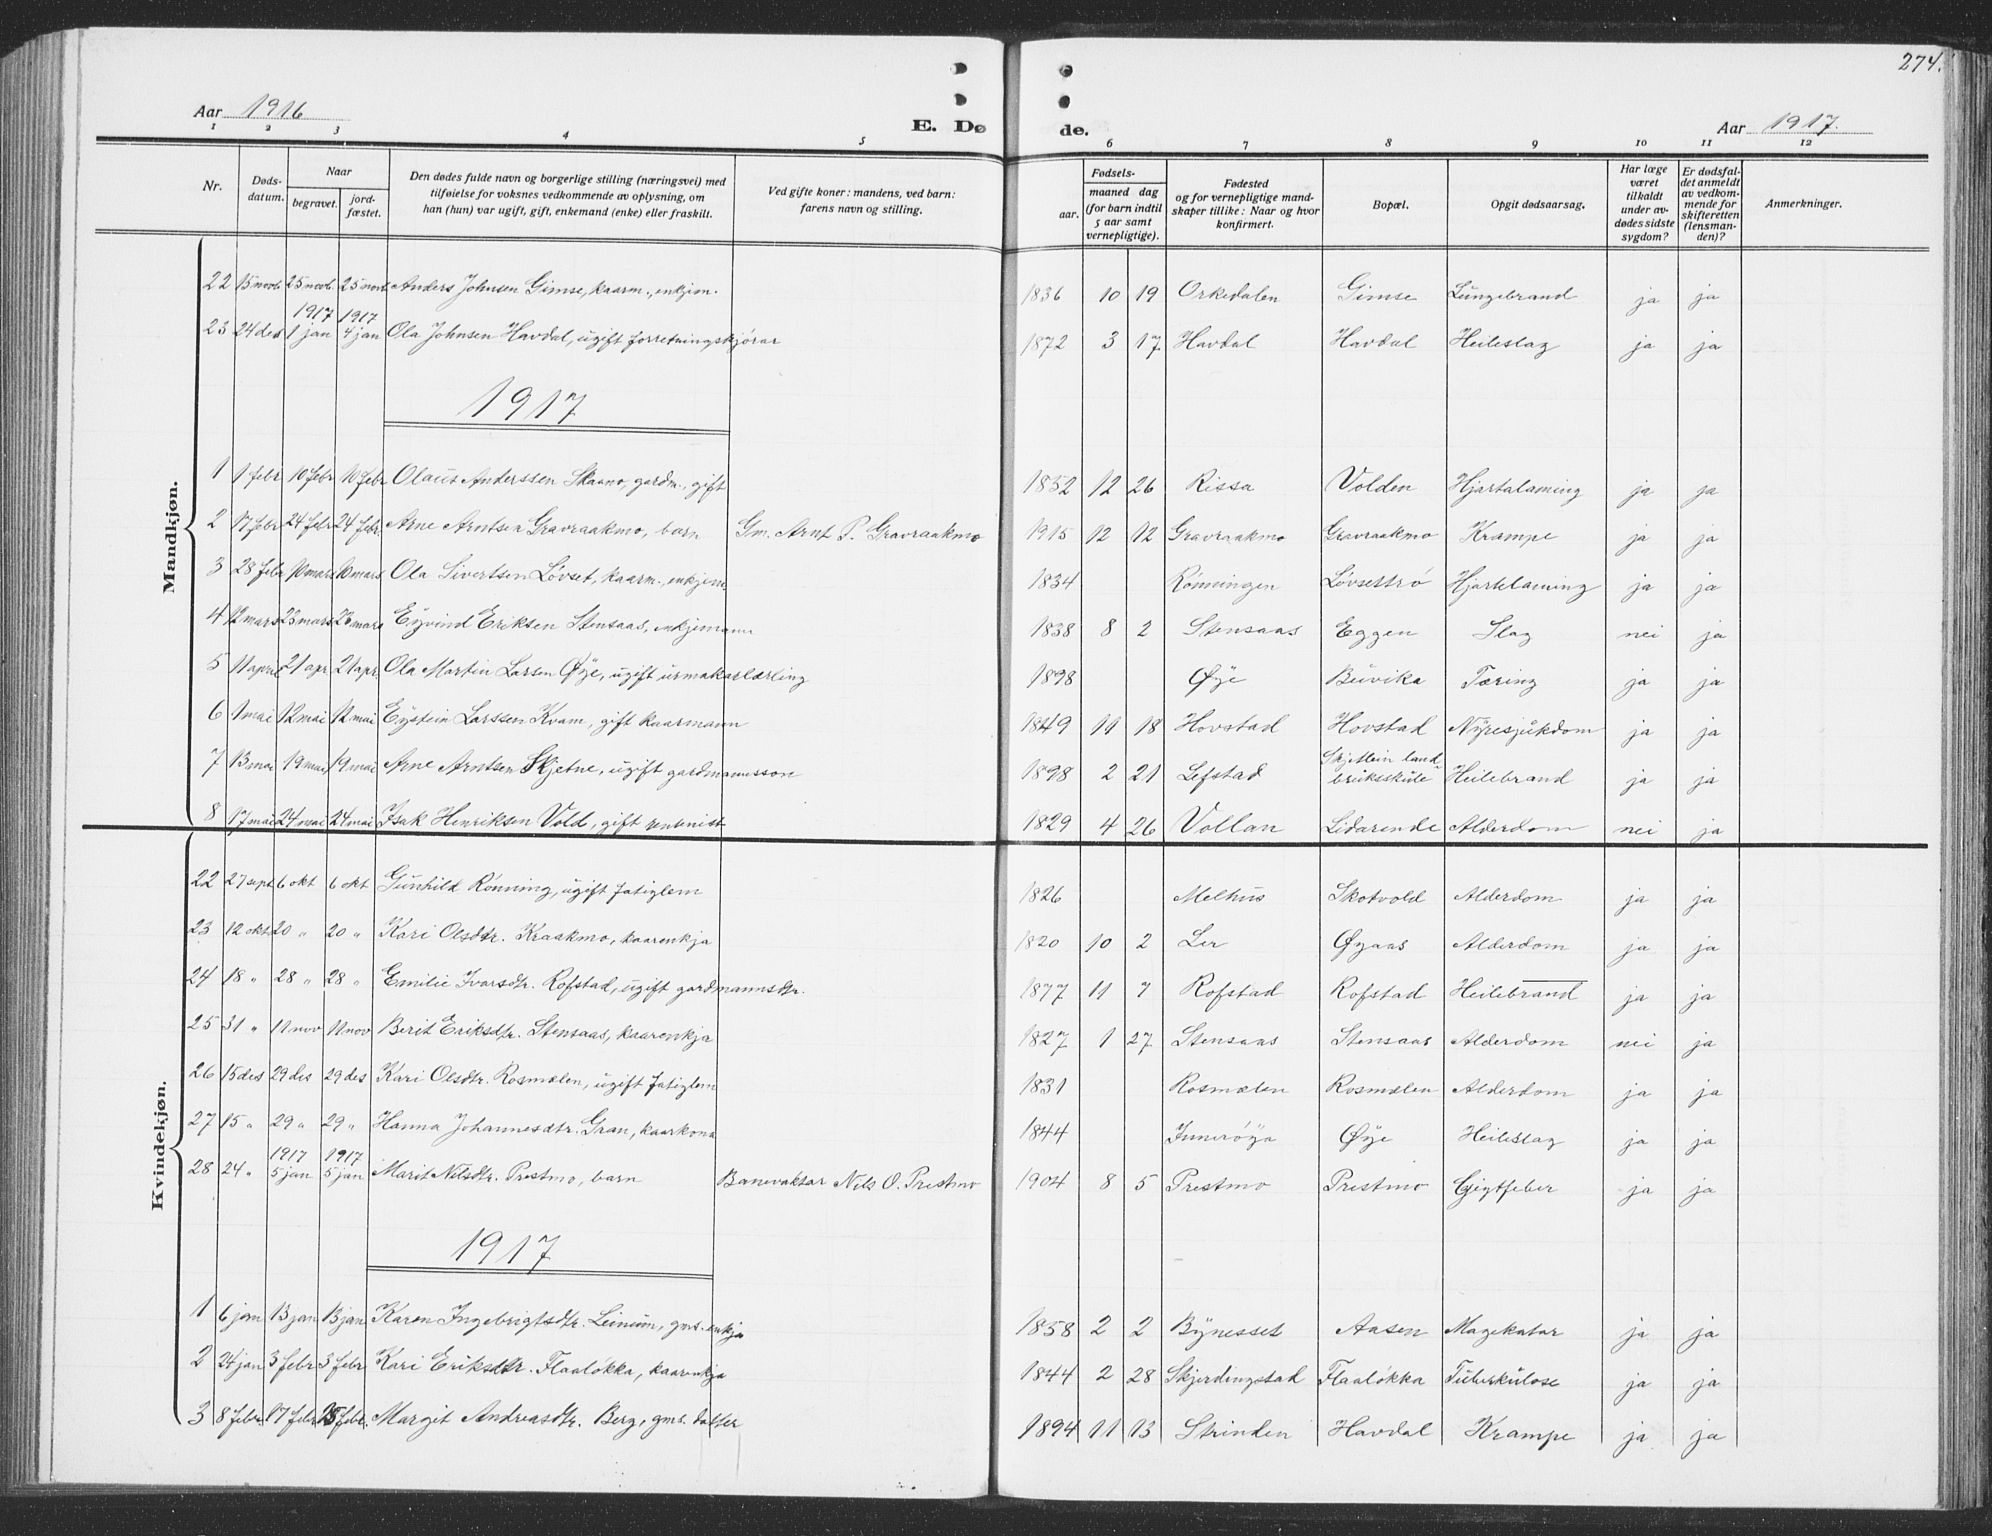 274.
Aar 1916
E. Dø de.
Aar 1917.
1 2 3 4 5 6 7 8 9 10 11 12
Nr. Døds-datum. Naar begravet. jord-fæstet. Den dødes fulde navn og borgerlige stilling (næringsvei) med tilføielse for voksnes vedkommende av oplysning, om han (hun) var ugift, gift, enkemand (enke) eller fraskilt. Ved gifte koner: mandens, ved barn: farens navn og stilling. Fødsels- aar. maaned dag (for barn indtil 5 aar samt vernepligtige). Fødested og for vernepligtige mand-skaper tillike: Naar og hvor konfirmert. Bopæl. Opgit dødsaarsag. Har læge været tilkaldt under av-dødes sidste sygdom? Er dødsfal-det anmeldt av vedkom-mende for skifteretten (lensman-den)? Anmerkninger.
Mandkjøn.
22 15 novb. 25 novb. 25 novb. Anders Johnsen Gimse, kaarm., enkjem. 1836 10 19 Orkedalen Gimse Lungebrand ja ja
23 24 des 1917 1 jan 1917 4 jan Ola Johnsen Havdal, ugift forretningskjørar 1872 3 17 Havdal Havdal Heileslag ja ja
1917
1 1 febr 10 febr 10 febr Olaus Anderssen Skaano, gardm., gift 1852 12 26 Rissa Volden Hjartalaming ja ja
2 17 febr 24 febr 24 febr. Arne Arntsen Gravraakmo, barn Gm. Arnt P. Gravraakmo 1915 12 12 Gravraakmo Gravraakmo Krampe ja ja
3 28 febr 10 mars 10 mars Ola Sivertsen Løvset, kaarm., enkjem. 1834 Rønningen Løvsettrø Hjartelaming ja ja
4 12 mars 23 mars 23 mars Eyvind Eriksen Stensaas, enkjemann 1838 8 2 Stensaas Eggen Slag nei ja
5 11 april 21 apr. 21 apr. Ola Martin Larsen Øye, ugift urmakarlærling 1898 Øye Buvika Tæring ja ja
6 1 mai 12 mai 12 mai Eystein Larssen Kvam, gift kaarmann 1849 11 18 Hovstad Hovstad Nyresjukdom ja ja
7 13 mai 19 mai 19 mai Arne Arntsen Skjetne, ugift gardmannsson 1898 2 21 Lefstad Skjetlein land-bruksskule Heilebrand ja ja
8 17 mai 24 mai 24 mai Isak Henriksen Vold, gift rentenist 1829 4 26 Vollan Lidarende Alderdom nei ja
Kvindekjøn.
22 27 sept 6 okt 6 okt Gunhild Rønning, ugift fatiglem 1826 Melhus Skotvold Alderdom ja ja
23 12 okt 20 " 20 " Kari Olsdtr. Kraakmo, kaarenkja 1820 10 2 Ler Øyaas Alderdom ja ja
24 18 " 28 " 28 " Emilie Ivarsdtr. Rofstad, ugift gardmannsdtr. 1877 11 7 Rofstad Rofstad Heilebrand ja ja
25 31 " 11 nov 11 nov Berit Eriksdtr. Stensaas, kaarenkja 1827 1 27 Stensaas Stensaas Alderdom nei ja
26 15 des 29 des 29 des Kari Olsdtr. Rosmælen, ugift fatiglem 1831 Rosmælen Rosmælen Alderdom ja ja
27 15 " 29 " 29 " Hanna Johannesdtr. Gran, kaarkona 1844 Innerøya Øye Heileslag ja ja
28 24 " 1917 5 jan 1917 5 jan Marit Nilsdtr. Prestmo, barn Banevaktar Nils O. Prestmo 1904 8 5 Prestmo Prestmo Gigtfeber ja ja
1917
1 6 jan 13 jan 13 jan Karen Ingebrigtsdtr. Leinum, gms. enkja 1858 2 2 Bynesset Aasen Magekatar ja ja
2 24 jan 3 febr 3 febr Kari Eriksdtr. Flaaløkka, kaarenkja 1844 2 28 Skjerdingstad Flaaløkka Tuberkulose ja ja
3 8 febr 17 febr febr. Margit Andreasdtr. Berg, gms. datter 1894 11 13 Strinden Havdal Krampe ja ja